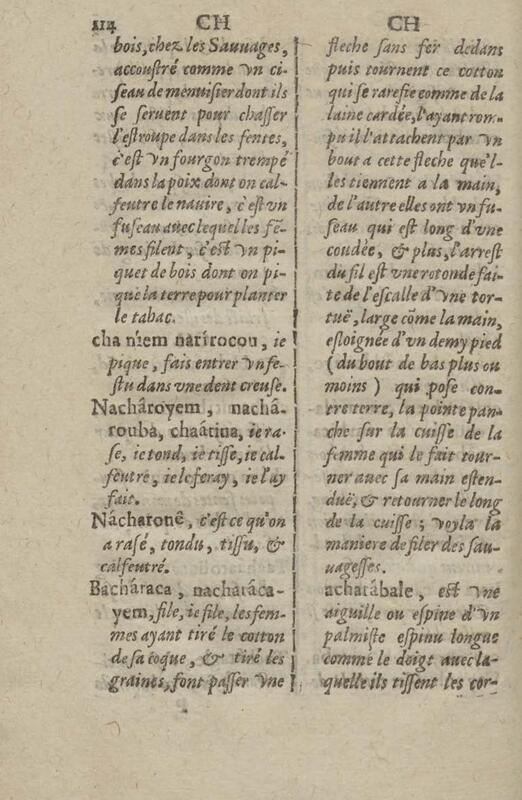 114 CH
bois, chez les Sauuages,
accoustré comme vn ci-
seau de menuisier dont ils
se seruent pour chasser
l'estroupe dans les fentes,
c'est vn fourgon trempé
dans la poix dont on cal-
feutre le nauire, c'est un
fuseau auec lequel les fẽ-
mes filent, c'est vn pi-
quet de bois dont on pi-
que la terre pour planter
le tabac.
cha niem natirocou, ie
pique, fais entrer vn fe-
stu dans vne dent creuse.
Nachâroyem, nachâ-
rouba, chaâtina, ie ra-
se, ie tond, ie tisse, ie cal-
feutre, ie le feray, ie l'ay
fait.
Nâcharonê, c'est ce qu'on
a rasé, tondu, tissu, &
calfeutré.
Bachâraca, nacharáca-
yem, file, ie file, les fem-
mes ayant tiré le cotton
de sa coque, & tiré les
graines, font passer vne
CH
fleche sans fer dedans
puis tournent ce cotton
qui se rarefie comme de la
laine cardée, l'ayant rom-
pu il l'attachent par vn
bout a cette fleche qu'el-
les tiennent a la main,
de l'autre elles ont vn fu-
seau qui est long d'vne
coudée, & plus, l'arrest
du fil est vne rotonde fai-
te de l'escalle d'vne tor-
tuë, large cõme la main,
esloignée d'vn demy pied
(du bout de bas plus ou
moins) qui pose con-
tre terre, la pointe pan-
che sur la cuisse de la
femme qui le fait tour-
ner auec sa main esten-
duë, & retourner le long
de la cuisse ; voyla la
maniere de filer des sau-
uagesses.
achatábale, est vne
aiguille ou espine d'vn
palmiste espinu longue
comme le doigt auec la-
quelle ils tissent les cor-